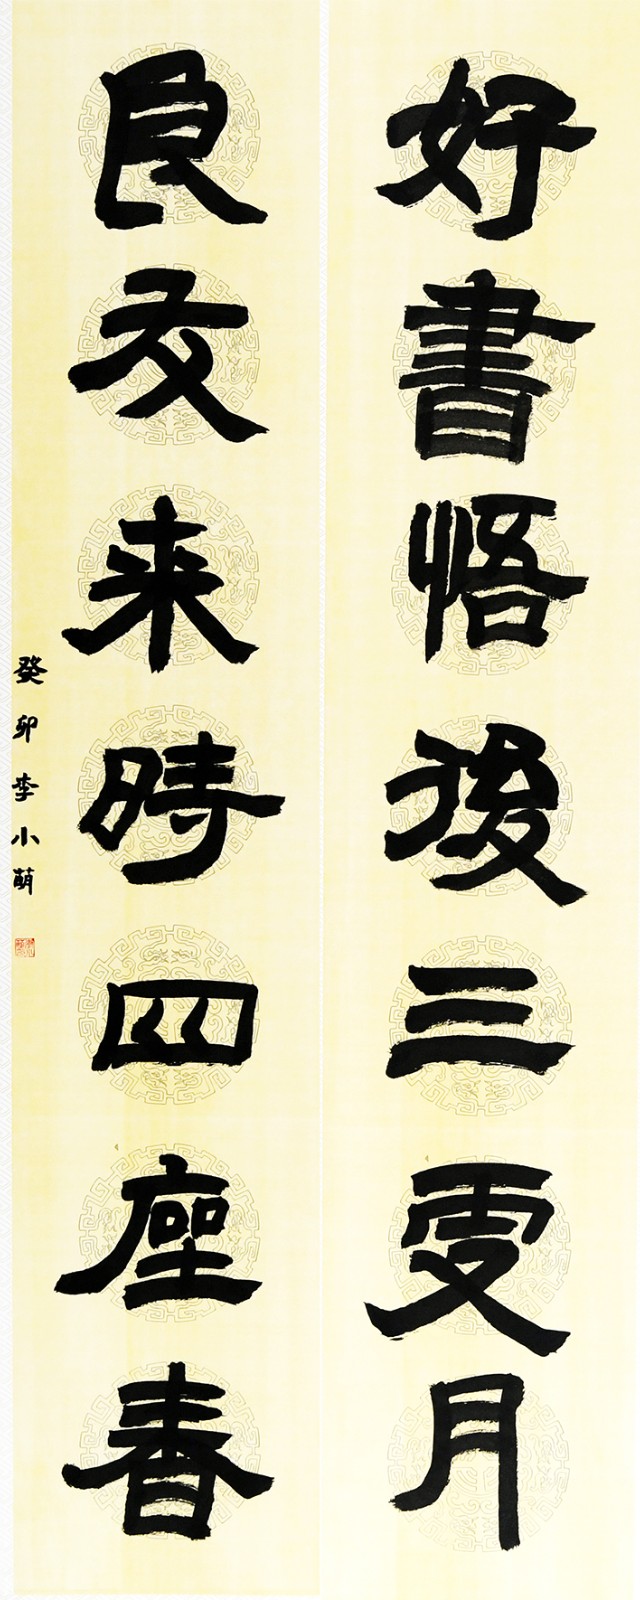 好書悟後三更月
良友来時四座春
癸卯李小萌